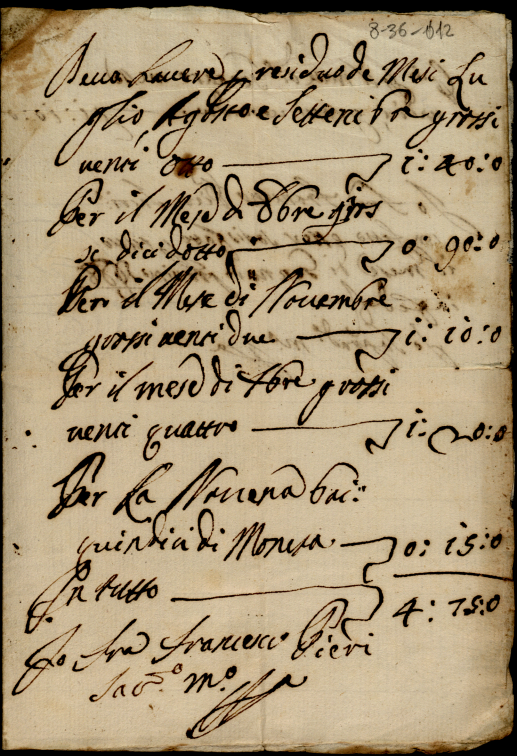 8-36-012
Deve havere p residuo de Mesi Lu
glio, Agosto e Settembre grossi
venti otto 1: 40: 0
Per il Mese di 8bre gros
si dicidotto 0: 90: 0
Per il Mese di Novembre
grossi venti due 1: 10: 0
Per il mese di Xbre grossi
venti quattro 1: 20: 0
Per La Novena bai:
quindici di Moneta 0: 15: 0
In tutto 4: 75: 0
Io fra Francesco Pieri
Sac.º m.º